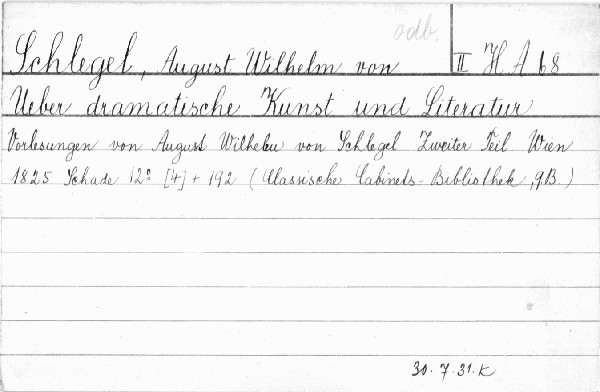 odb.
Schlegel, August Wilhelm von II H A 68
Ueber dramatische Kunst und Literatur
Vorlesungen von August Wilhelm von Schlegel Zweiter Teil Wien
1825 Schade 12° [4] + 192 (Classische Cabinets-Bibliothek, 9.B.)
30.7.31.K